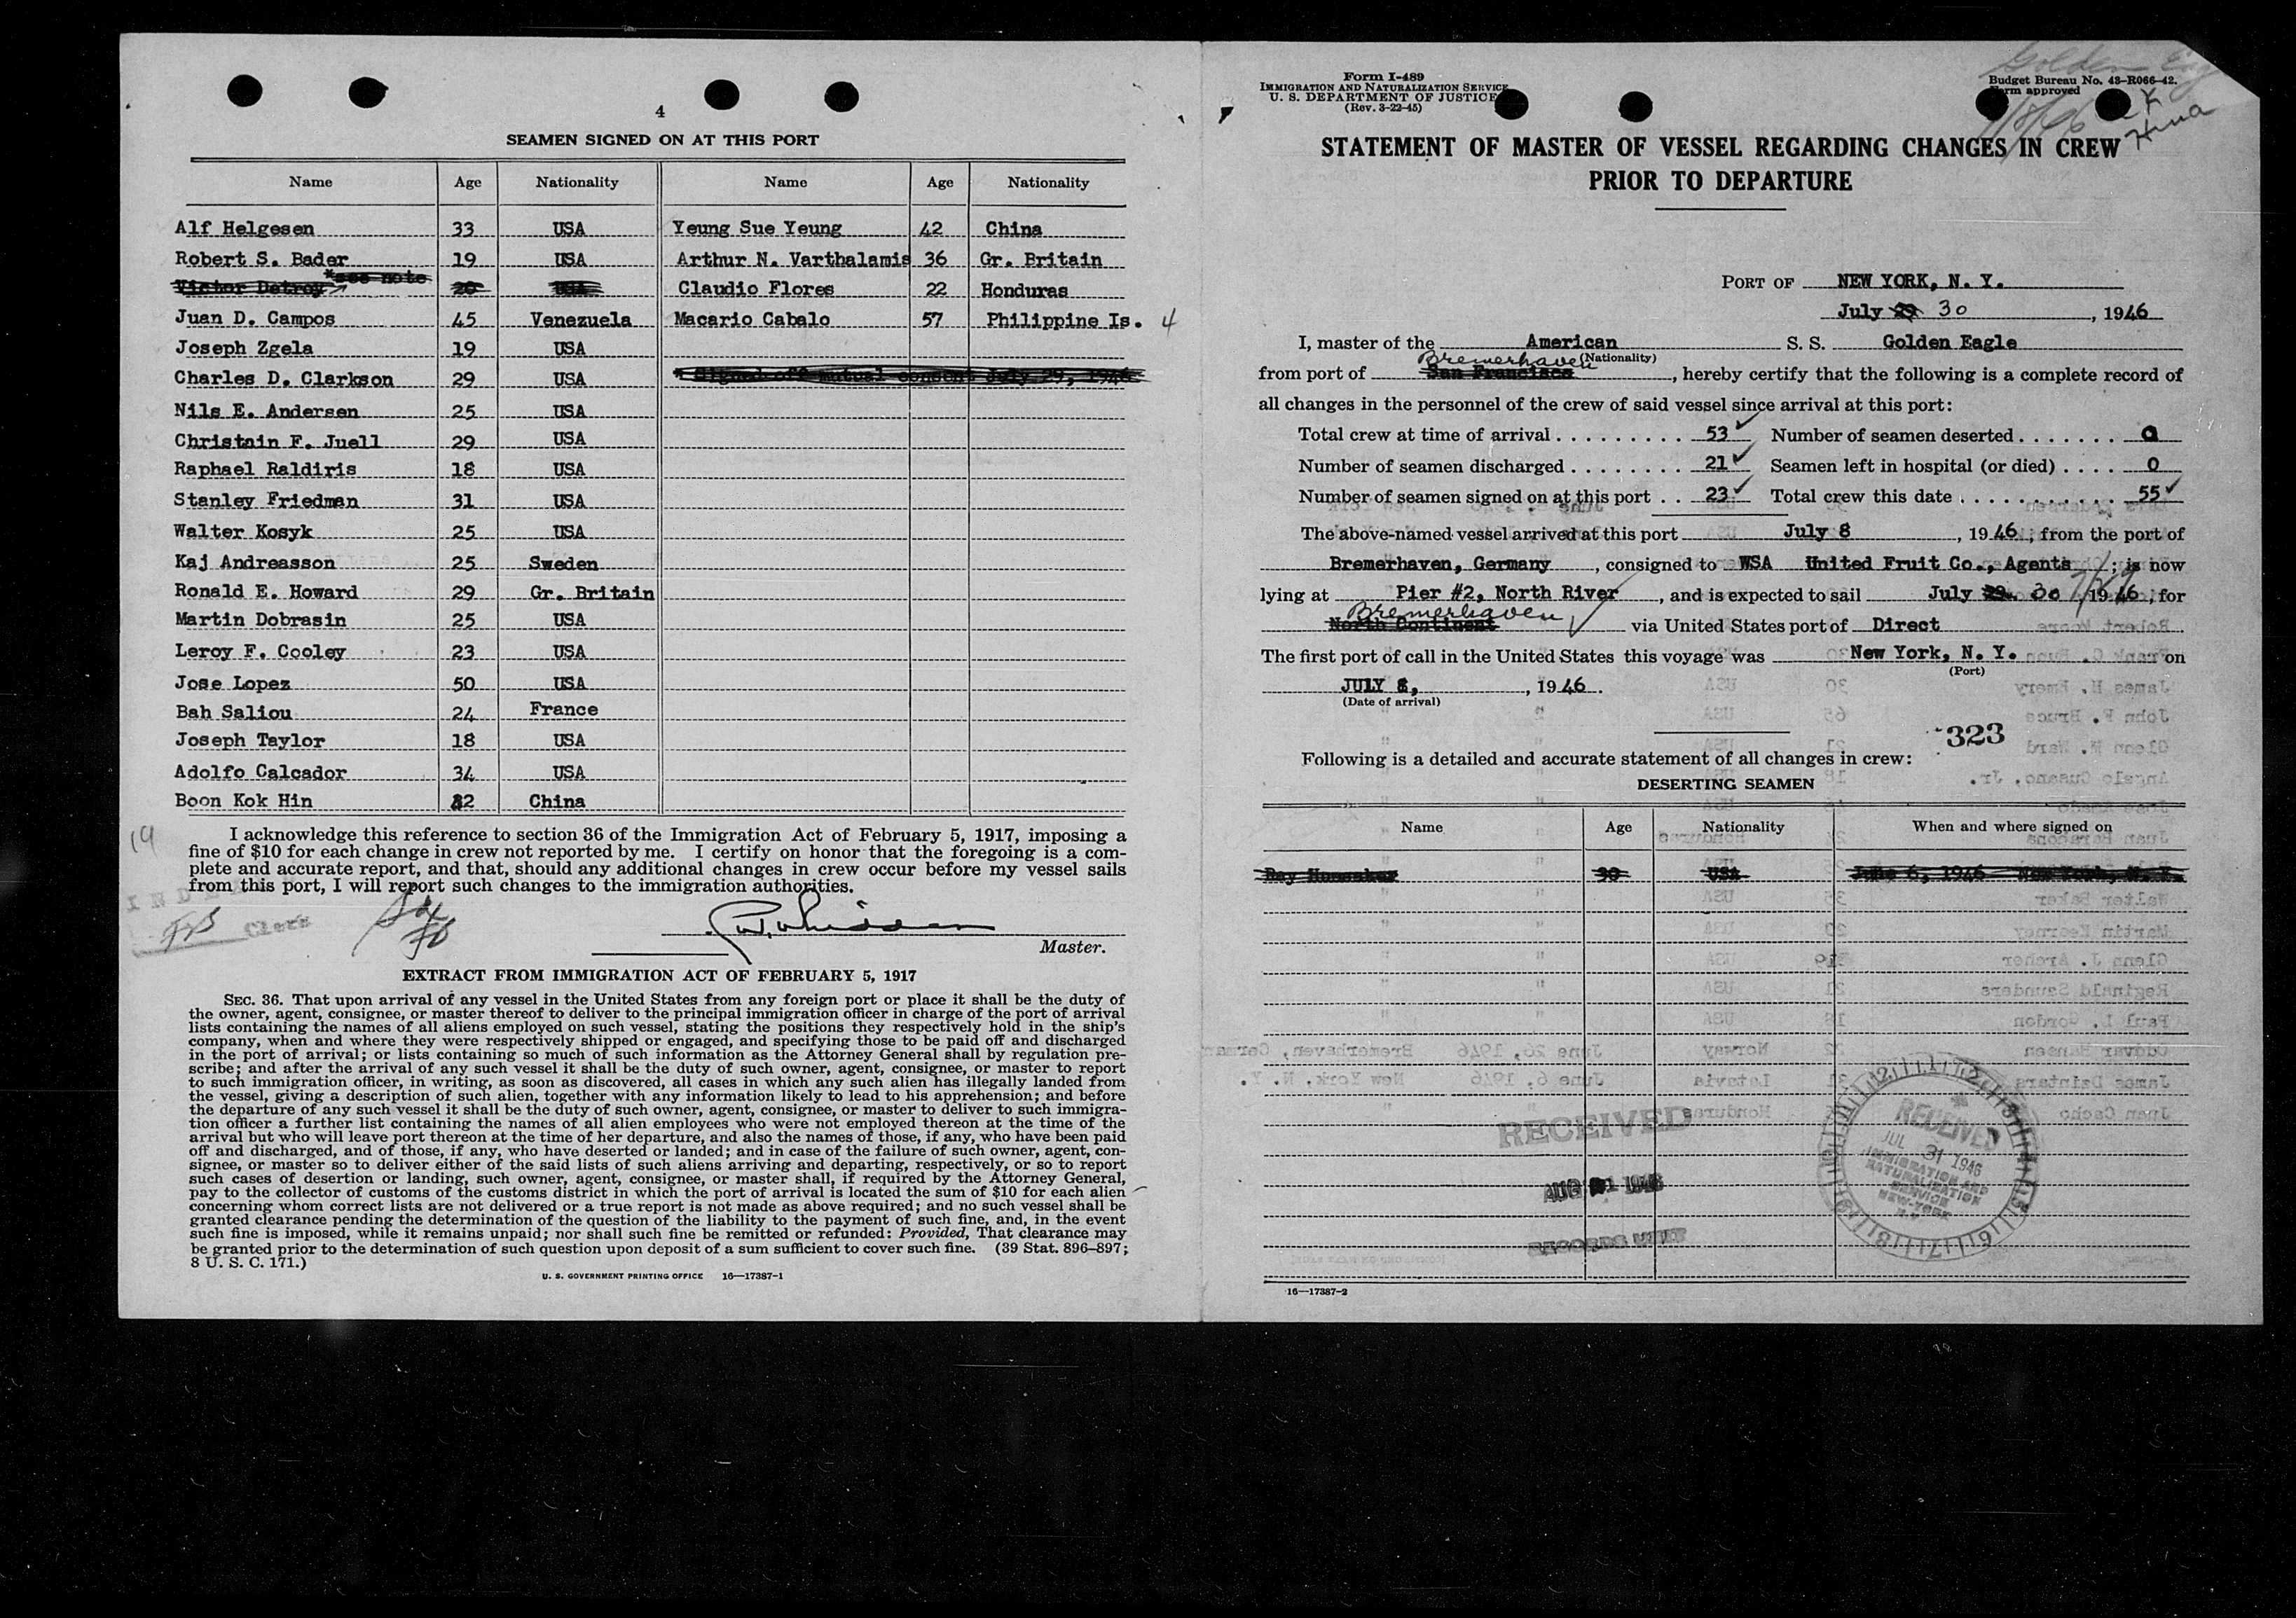 4
SEAMEN SIGNED ON AT THIS PORT
Name Age Nationality Name Age Nationality
Alf Helgesen 33 USA Yeung Sue Yeung 42 China
Robert S. Bader 19 USA Arthur N. Varthalamis 36 Gr. Britain
*see note
Victor Detroy 20 USA Claudio Flores 22 Honduras
Juan D. Campos 45 Venezuela Macario Cabalo 57 Philippine Is. 4
Joseph Zgela 19 USA
Charles D. Clarkson 29 USA * Signed off mutual consent July 29, 1946
Nils E. Andersen 25 USA
Christain F. Juell 29 USA
Raphael Raldiris 18 USA
Stanley Friedman 31 USA
Walter Kosyk 25 USA
Kaj Andreasson 25 Sweden
Ronald E. Howard 29 Gr. Britain
Martin Dobrasin 25 USA
Leroy F. Cooley 23 USA
Jose Lopez 50 USA
Bah Saliou 24 France
Joseph Taylor 18 USA
Adolfo Calcador 34 USA
Boon Kok Hin 32 China
19
I acknowledge this reference to section 36 of the Immigration Act of February 5, 1917, imposing a
fine of $10 for each change in crew not reported by me. I certify on honor that the foregoing is a com-
plete and accurate report, and that, should any additional changes in crew occur before my vessel sails
from this port, I will report such changes to the immigration authorities.
Clerk
Master.
EXTRACT FROM IMMIGRATION ACT OF FEBRUARY 5, 1917
SEC. 36. That upon arrival of any vessel in the United States from any foreign port or place it shall be the duty of
the owner, agent, consignee, or master thereof to deliver to the principal immigration officer in charge of the port of arrival
lists containing the names of all aliens employed on such vessel, stating the positions they respectively hold in the ship's
company, when and where they were respectively shipped or engaged, and specifying those to be paid off and discharged
in the port of arrival; or lists containing so much of such information as the Attorney General shall by regulation pre-
scribe; and after the arrival of any such vessel it shall be the duty of such owner, agent, consignee, or master to report
to such immigration officer, in writing, as soon as discovered, all cases in which any such alien has illegally landed from
the vessel, giving a description of such alien, together with any information likely to lead to his apprehension; and before
the departure of any such vessel it shall be the duty of such owner, agent, consignee, or master to deliver to such immigra-
tion officer a further list containing the names of all alien employees who were not employed thereon at the time of the
arrival but who will leave port thereon at the time of her departure, and also the names of those, if any, who have been paid
off and discharged, and of those, if any, who have deserted or landed; and in case of the failure of such owner, agent, con-
signee, or master so to deliver either of the said lists of such aliens arriving and departing, respectively, or so to report
such cases of desertion or landing, such owner, agent, consignee, or master shall, if required by the Attorney General,
pay to the collector of customs of the customs district in which the port of arrival is located the sum of $10 for each alien
concerning whom correct lists are not delivered or a true report is not made as above required; and no such vessel shall be
granted clearance pending the determination of the question of the liability to the payment of such fine, and, in the event
such fine is imposed, while it remains unpaid; nor shall such fine be remitted or refunded: Provided, That clearance may
be granted prior to the determination of such question upon deposit of a sum sufficient to cover such fine. (39 Stat. 896–897;
8 U. S. C. 171.)
U. S. GOVERNMENT PRINTING OFFICE 16—17387-1
Form I-489
IMMIGRATION AND NATURALIZATION SERVICE
U. S. DEPARTMENT OF JUSTICE
(Rev. 3-22-45)
Golden
Budget Bureau No. 43-R066-42.
Form approved
STATEMENT OF MASTER OF VESSEL REGARDING CHANGES IN CREW
PRIOR TO DEPARTURE
PORT OF NEW YORK, N. Y.
July 29 30, 1946
I, master of the American S. S. Golden Eagle
Bremerhaven (Nationality)
from port of San Francisco, hereby certify that the following is a complete record of
all changes in the personnel of the crew of said vessel since arrival at this port:
Total crew at time of arrival . . . . . . . . . . 53 Number of seamen deserted . . . . . . . 0
Number of seamen discharged . . . . . . . . 21 Seamen left in hospital (or died) . . . . 0
Number of seamen signed on at this port . . 23 Total crew this date . . . . . . . . . . . . 55
The above-named vessel arrived at this port July 8, 1946, from the port of
Bremerhaven, Germany, consigned to WSA United Fruit Co., Agents; is now
lying at Pier #2, North River, and is expected to sail July 29. 30, 1946, for
Bremerhaven
North Continent via United States port of Direct
The first port of call in the United States this voyage was New York, N. Y. on
(Port)
JULY 8, 1946.
(Date of arrival)
323
Following is a detailed and accurate statement of all changes in crew:
DESERTING SEAMEN
Name Age Nationality When and where signed on
Ray Hunsaker 30 USA June 6, 1946 New York, N. Y.
RECEIVED
AUG 1 1946
RECORDS UNIT
RECEIVED
JUL 31 1946
IMMIGRATION AND
NATURALIZATION
SERVICE
NEW YORK
N.Y.
16—17387-2